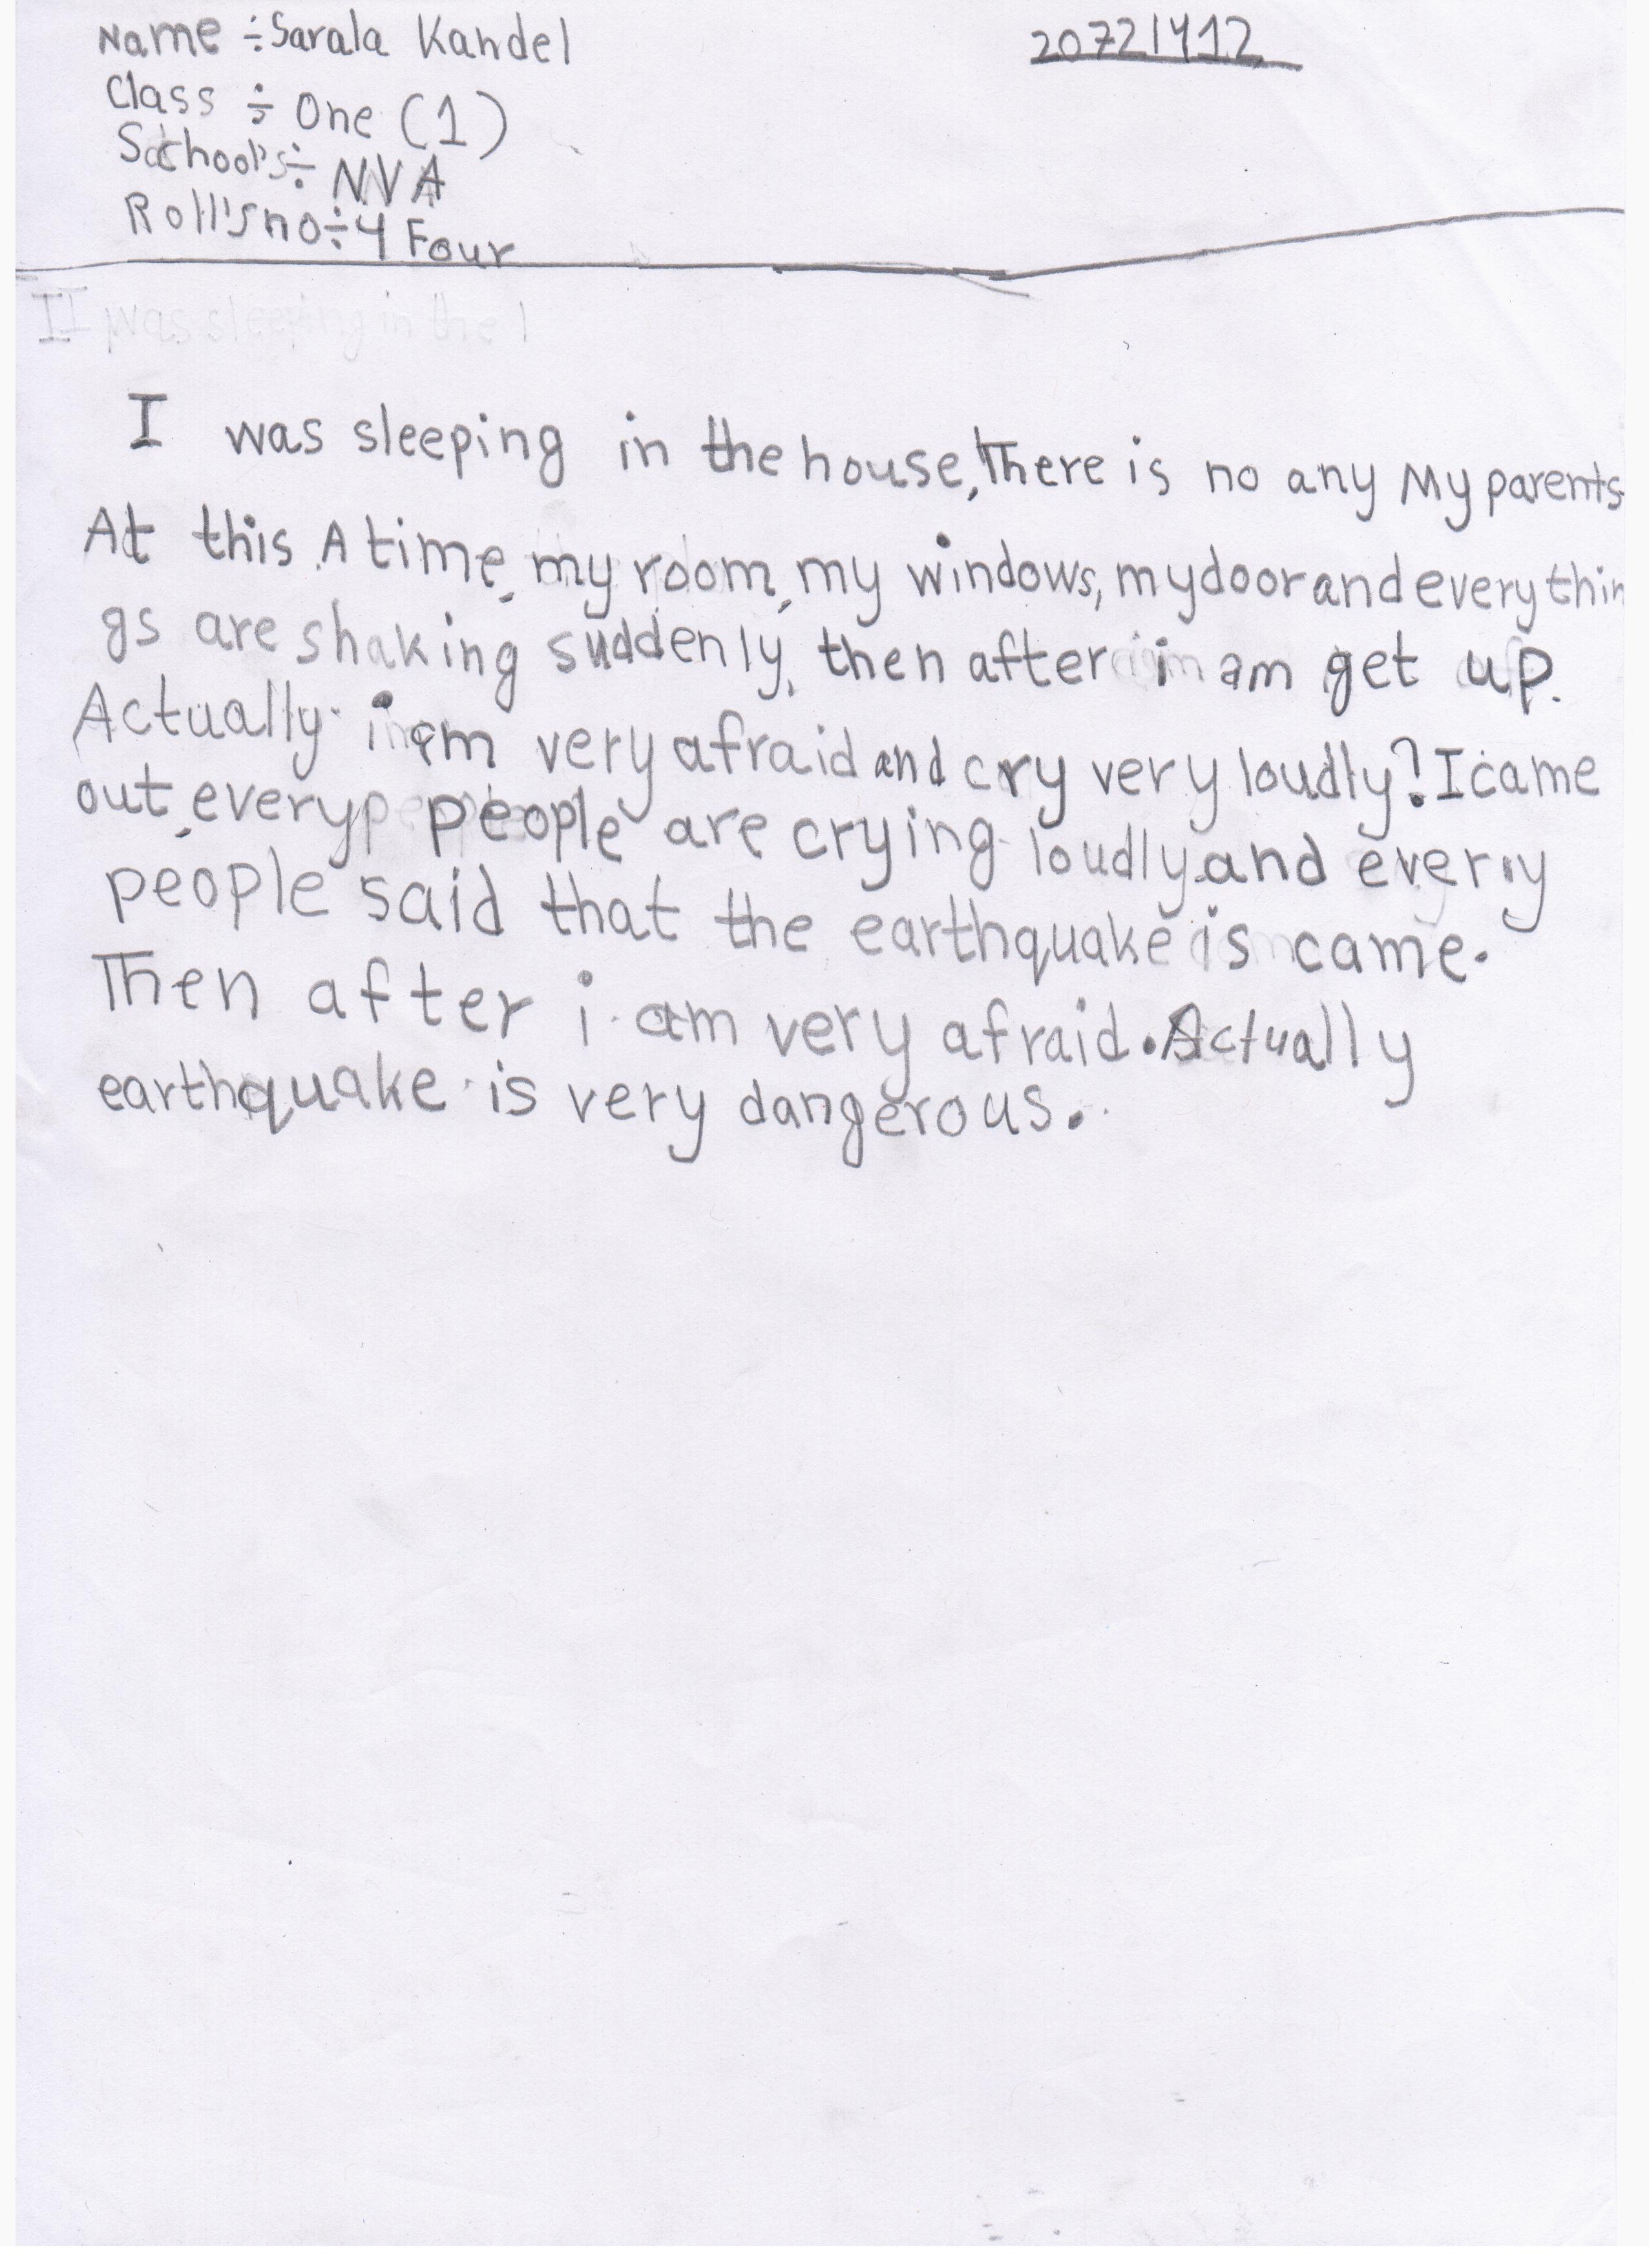 Name ÷ Sarala Kandel
2072/4/12
Class ÷ One (1)
School's ÷ NVA
Roll's no ÷ 4 Four
I was sleeping in the
I was sleeping in the house, There is no any My parents
At this A time, my room, my windows, my door and every thin
gs are shaking suddenly, then after i am get up.
Actually i am very afraid and cry very loudly? I came
out, every people are crying loudly and every
people said that the earthquake is came.
Then after i am very afraid. Actually
earthquake is very dangerous.